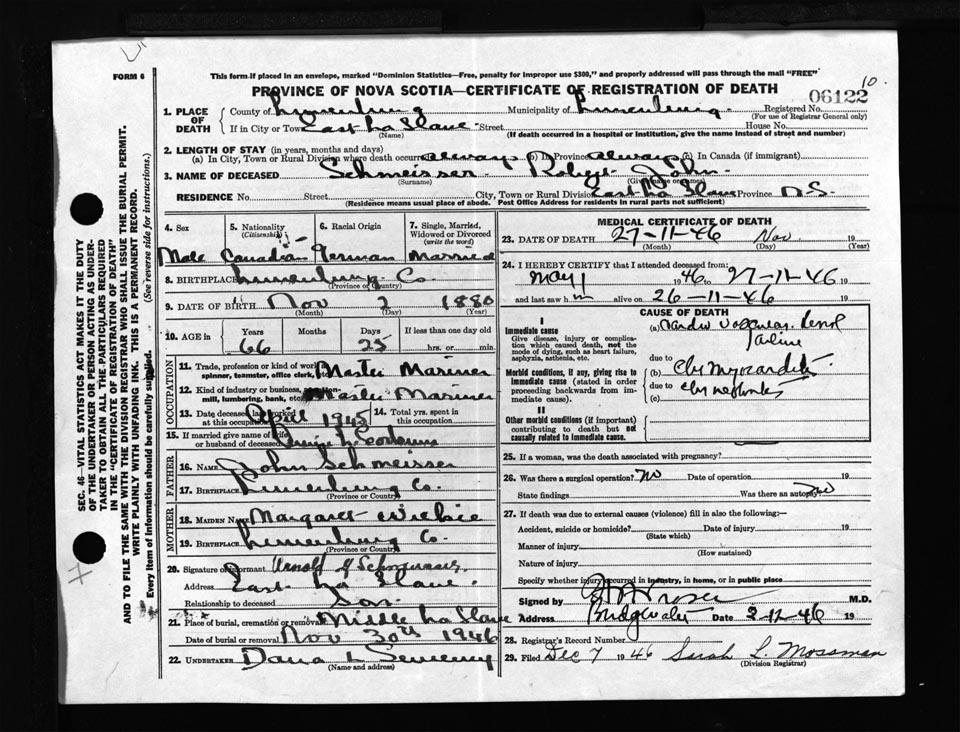 FORM 6
This form if placed in an envelope, marked "Dominion Statistics—Free, penalty for improper use $300," and properly addressed will pass through the mail "FREE"
PROVINCE OF NOVA SCOTIA—CERTIFICATE OF REGISTRATION OF DEATH
10.
06122
1. PLACE OF DEATH
County of Lunenburg Municipality of Lunenburg Registered No.
(For use of Registrar General only)
If in City or Town East La Have Street House No.
(Name) (If death occurred in a hospital or institution, give the name instead of street and number)
2. LENGTH OF STAY (in years, months and days)
(a) In City, Town or Rural Division where death occurred always (b) In Province always (c) In Canada (if immigrant)
3. NAME OF DECEASED Schmeisser John
(Surname)
RESIDENCE No. Street City, Town or Rural Division East La Have Province N.S.
(Residence means usual place of abode. Post Office Address for residents in rural parts not sufficient)
4. Sex 5. Nationality (Citizenship) 6. Racial Origin 7. Single, Married, Widowed or Divorced (write the word)
Male Canadian German Married
8. BIRTHPLACE Lunenburg Co
(Province or Country)
9. DATE OF BIRTH Nov 2 1880
(Month) (Day) (Year)
10. AGE in Years Months Days If less than one day old
66 25 hrs. or min.
OCCUPATION
11. Trade, profession or kind of work, spinner, teamster, office clerk, etc. Master Mariner
12. Kind of industry or business, mill, lumbering, bank, etc. Master Mariner
13. Date deceased last worked at this occupation April 1945 14. Total yrs. spent in this occupation
15. If married give name of wife or husband of deceased
FATHER
16. Name John Schmeisser
17. Birthplace Lunenburg Co.
(Province or Country)
MOTHER
18. Maiden Name Margaret
19. Birthplace Lunenburg Co.
(Province or Country)
20. Signature of Informant Arnold J Schmeisser
Address East La Have
Relationship to deceased Son
21. Place of burial, cremation or removal Middle La Have
Date of burial or removal Nov 30th 1946
22. UNDERTAKER Dana L Sweeney
(Name and address)
MEDICAL CERTIFICATE OF DEATH
23. DATE OF DEATH 27-11-46 Nov 19
(Month) (Day) (Year)
24. I HEREBY CERTIFY that I attended deceased from:
May 1 1946 to 27-11-46 19
and last saw h m alive on 26-11-46 19
CAUSE OF DEATH
I
Immediate cause
Give disease, injury or complication which caused death, not the mode of dying, such as heart failure, asphyxia, asthenia, etc.
(a) Cardio Vascular Renal
failure
due to
Morbid conditions, if any, giving rise to immediate cause (stated in order proceeding backwards from immediate cause).
(b) Chr Myocarditis
due to Chr nephritis
(c)
II
Other morbid conditions (if important) contributing to death but not causally related to immediate cause.
25. If a woman, was the death associated with pregnancy?
26. Was there a surgical operation? No Date of operation 19
State findings Was there an autopsy? no
27. If death was due to external causes (violence) fill in also the following:—
Accident, suicide or homicide? Date of injury 19
(State which)
Manner of injury
(How sustained)
Nature of injury
Specify whether injury occurred in industry, in home, or in public place
Signed by M.D.
Address Bridgewater Date 2-12-46 19
28. Registrar's Record Number
29. Filed Dec 7 1946 Sarah L. Mossman
(Division Registrar)
SEC. 46—VITAL STATISTICS ACT MAKES IT THE DUTY
OF THE UNDERTAKER OR PERSON ACTING AS UNDER-
TAKER TO OBTAIN ALL THE PARTICULARS REQUIRED
IN THE "CERTIFICATE OF REGISTRATION OF DEATH"
AND TO FILE THE SAME WITH THE DIVISION REGISTRAR WHO SHALL ISSUE THE BURIAL PERMIT.
WRITE PLAINLY WITH UNFADING INK. THIS IS A PERMANENT RECORD.
Every item of information should be carefully supplied. (See reverse side for instructions.)